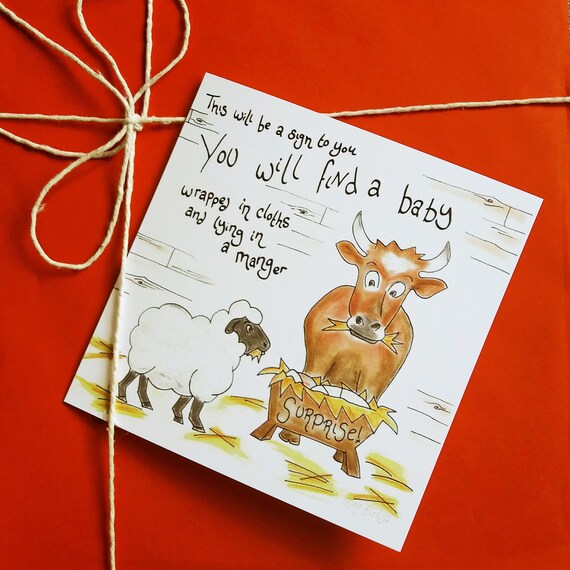 This will be a sign to you
You will find a baby
wrapped in cloths
and lying in
a manger
SURPRISE!